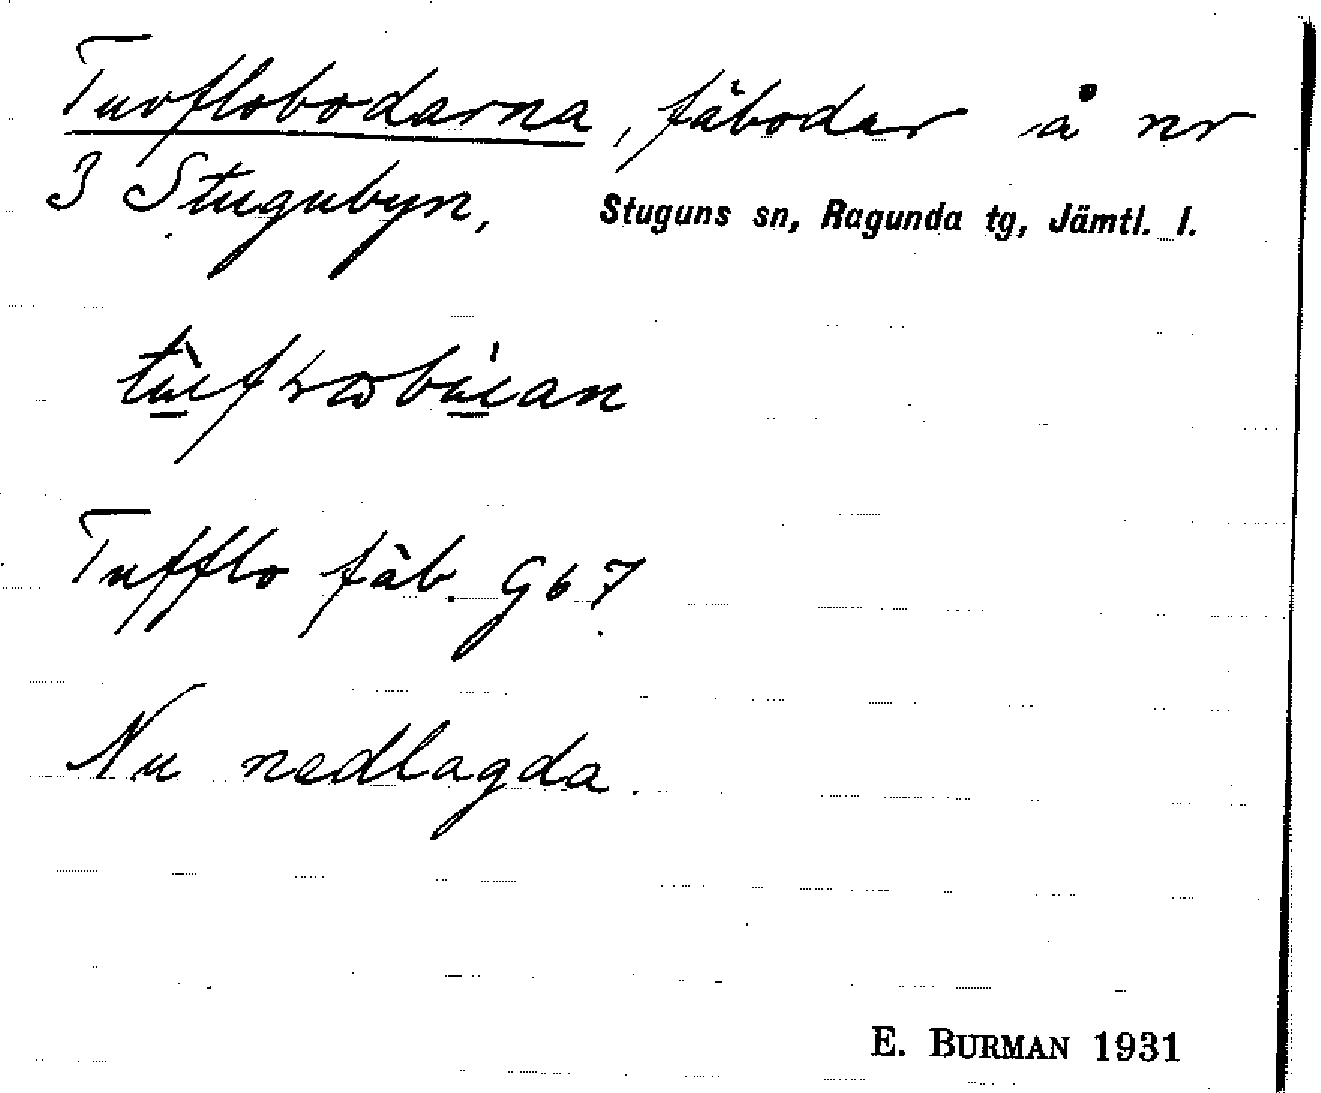 Tuvflobodarna, fäbodar å nr
3 Stugubyn, Stuguns sn, Ragunda tg, Jämtl. l.
Tufflo fäb. G67
Nu nedlagda.
E. BURMAN 1931